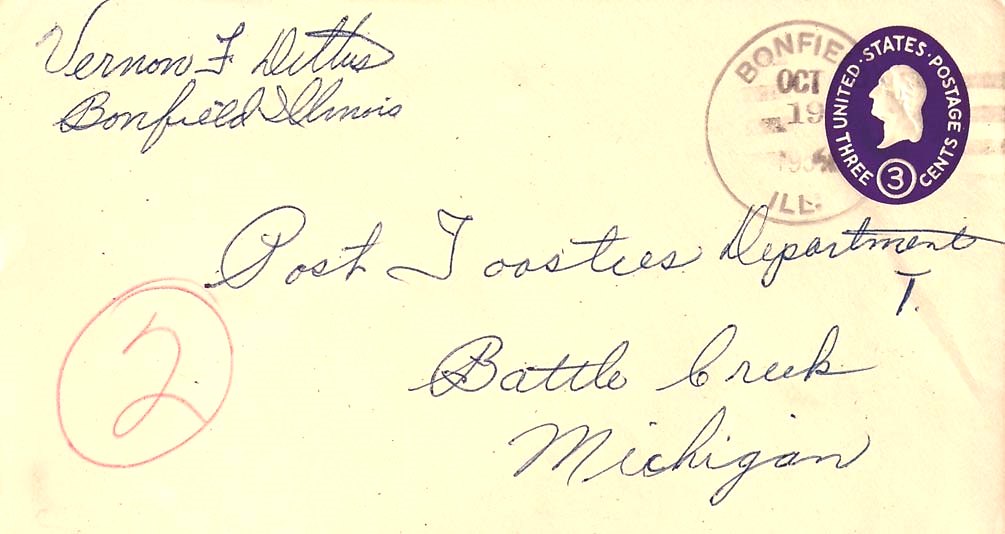 Vernon F Dittus
Bonfield Illinois
BONFIE
OCT
19
ILL.
UNITED · STATES · POSTAGE
THREE 3 CENTS
Post Toosties Department
T.
Battle Creek
Michigan
2